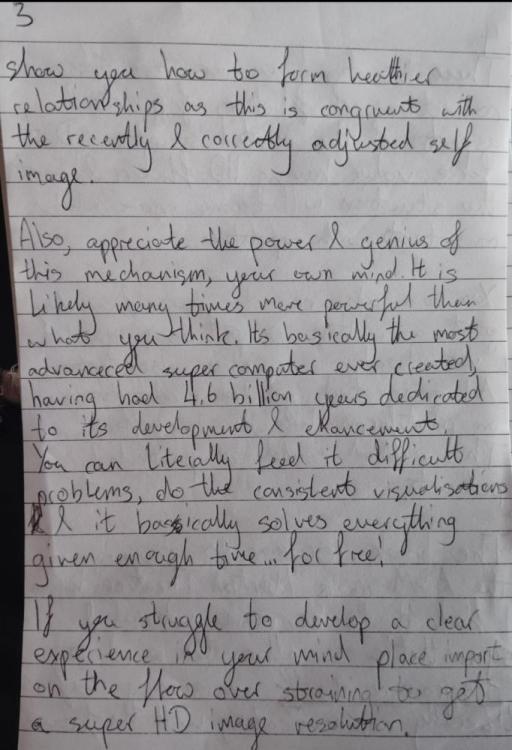 3
show you how to form healthier
relationships as this is congruent with
the recently & correctly adjusted self
image.
Also, appreciate the power & genius of
this mechanism, your own mind. It is
likely many times more powerful than
what you think. Its basically the most
advanceced super computer ever created,
having had 4,6 billion years dedicated
to its development & enhancement.
You can literally feed it difficult
problems, do the consistent visualisations
& it basically solves everything
given enough time... for free!
If you struggle to develop a clear
experience in your mind place import
on the flow over straining to get
a super HD image resolution.